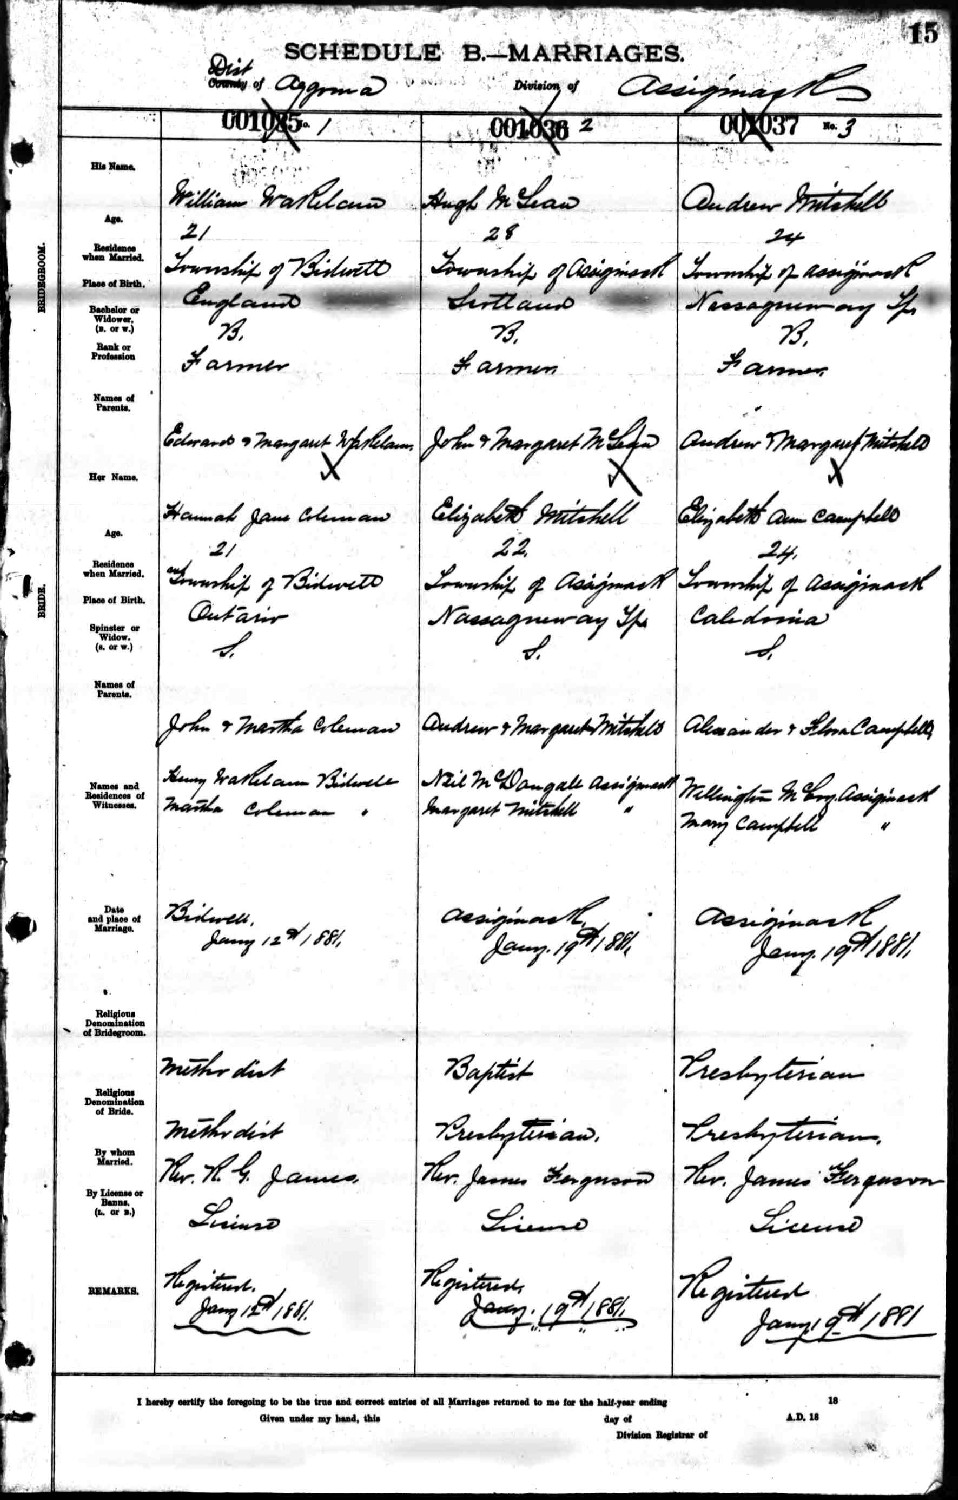 15
SCHEDULE B.—MARRIAGES.
Dist
County of Aggoma Division of Assiginack
001035 No. 1 001036 2 001037 No. 3
His Name.
William Wakelam Hugh McLean Andrew Mitchell
Age.
21 28 24
Residence when Married.
Township of Bidwell Township of Assiginack Township of Assiginack
Place of Birth.
England Scotland Nassagueway Tp.
Bachelor or Widower. (B. or W.)
B. B. B.
Rank or Profession
Farmer Farmer Farmer
Names of Parents.
Edward & Margaret Wakelam John & Margaret McLean Andrew & Margaret Mitchell
BRIDEGROOM.
Her Name.
Hannah Jane Coleman Elizabeth Mitchell Elizabeth Ann Campbell
Age.
21 22 24.
Residence when Married.
Township of Bidwell Township of Assiginack Township of Assiginack
Place of Birth.
Ontario Nassagueway Tp. Caledonia
Spinster or Widow. (S. or W.)
S. S. S.
Names of Parents.
John & Martha Coleman Andrew & Margaret Mitchell Alexander & Flora Campbell
BRIDE.
Names and Residences of Witnesses.
Henry Wakelam Bidwell Neil McDougall Assiginack Wellington McCoy Assiginack
Martha Coleman " Margaret Mitchell " Mary Campbell "
Date and place of Marriage.
Bidwell, Assiginack, Assiginack
Jany 12th 1881. Jany. 19th 1881. Jany. 19th 1881.
Religious Denomination of Bridegroom.
Methodist Baptist Presbyterian
Religious Denomination of Bride.
Methodist Presbyterian. Presbyterian.
By whom Married.
Rev. R. G. James. Rev. James Ferguson Rev. James Ferguson
By License or Banns. (L. or B.)
License License License
REMARKS.
Registered. Registered. Registered
Jany 12th 1881. Jany. 19th 1881. Jany. 19th 1881
I hereby certify the foregoing to be the true and correct entries of all Marriages returned to me for the half-year ending 18
Given under my hand, this day of A.D. 18
Division Registrar of